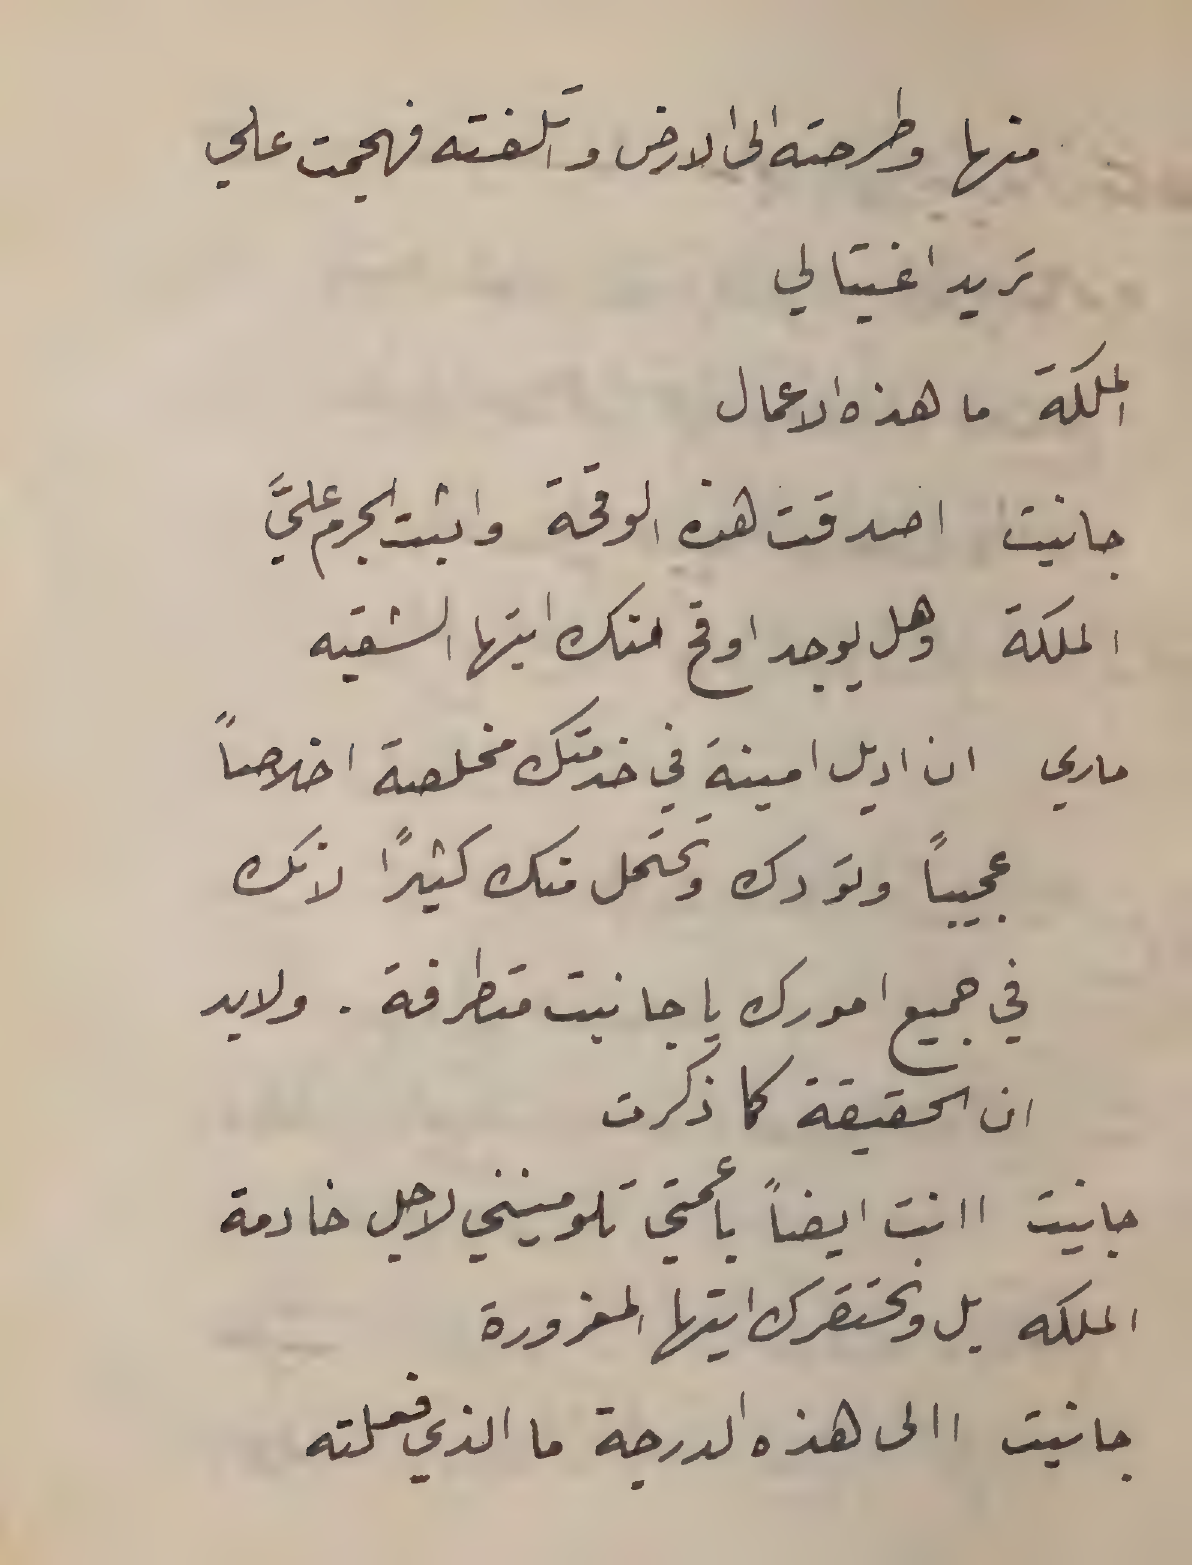 منها وطرحته الى الارض وأتلفته فهجمت علي
تريد اغتيالي
الملكة ما هذه الاعمال
جانيت اصدقت هذه الوقحة واثبت الجرم عليَّ
الملكة وهل يوجد اوقح منك ايتها الشقيه
ماري ان اديل امينة في خدمتك مخلصة اخلاصاً
عجيباً وتودك وتحتمل منك كثيرًا لانك
في جميع امورك يا جانيت متطرفة . ولابد
ان الحقيقة كما ذكرت
جانيت اانت ايضاً ياعمتي تلومينني لاجل خادمة
الملكه بل ونحتقرك ايتها المغرورة
جانيت االى هذه الدرجة ما الذي فعلته